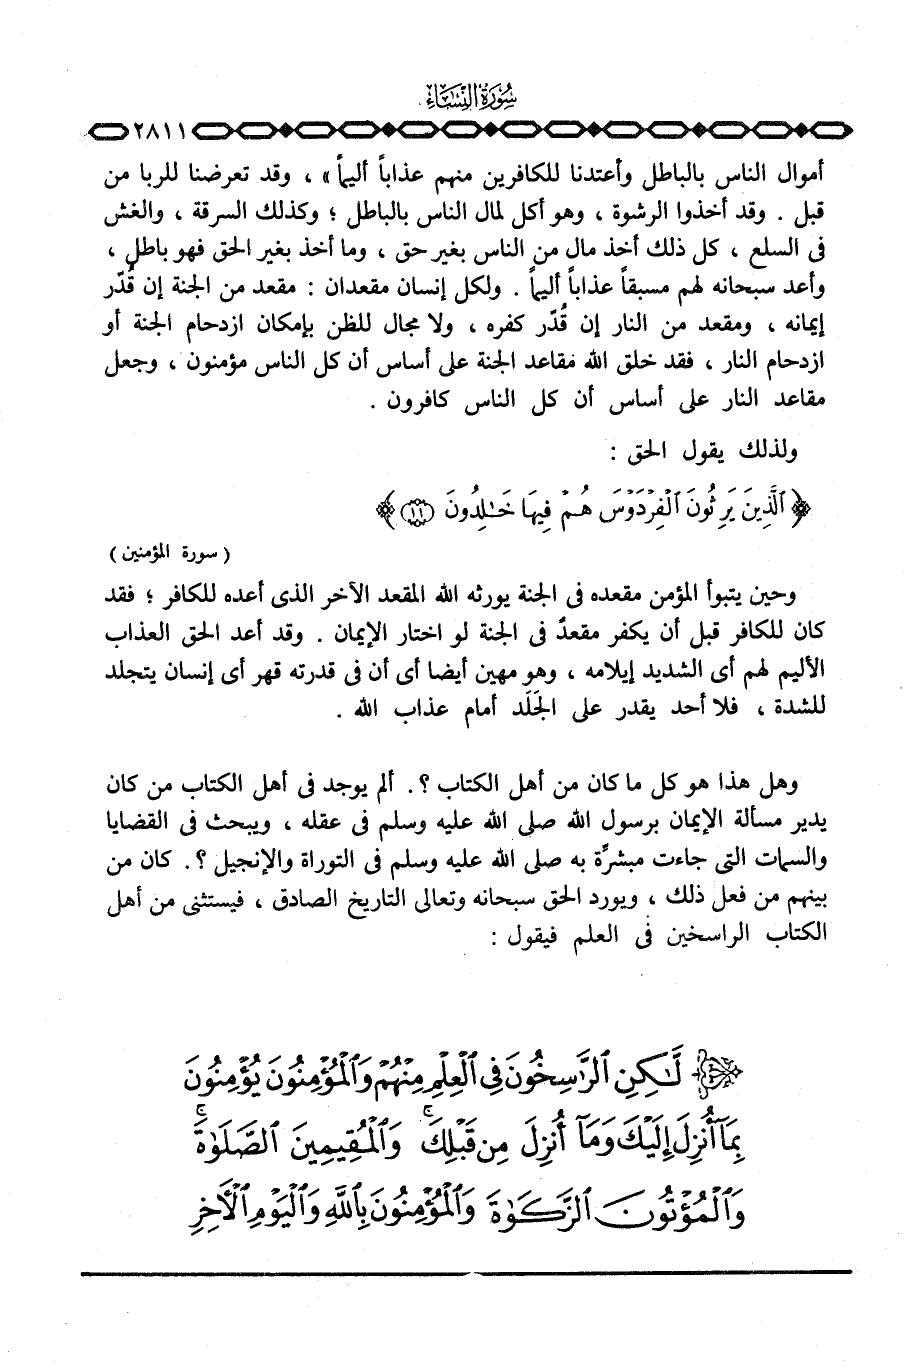 سورة النساء
٢٨١١
أموال الناس بالباطل وأعتدنا للكافرين منهم عذاباً أليماً » ، وقد تعرضنا للربا من
قبل . وقد أخذوا الرشوة ، وهو أكل لمال الناس بالباطل ؛ وكذلك السرقة ، والغش
فى السلع ، كل ذلك أخذ مال من الناس بغير حق ، وما أخذ بغير الحق فهو باطل ،
وأعد سبحانه لهم مسبقاً عذاباً أليماً . ولكل إنسان مقعدان : مقعد من الجنة إن قُدّر
إيمانه ، ومقعد من النار إن قُدّر كفره ، ولا مجال للظن بإمكان ازدحام الجنة أو
ازدحام النار ، فقد خلق الله مقاعد الجنة على أساس أن كل الناس مؤمنون ، وجعل
مقاعد النار على أساس أن كل الناس كافرون .
ولذلك يقول الحق :
﴿ ٱلَّذِينَ يَرِثُونَ ٱلْفِرْدَوْسَ هُمْ فِيهَا خَٰلِدُونَ ﴿١١﴾ ﴾
( سورة المؤمنين )
وحين يتبوأ المؤمن مقعده فى الجنة يورثه الله المقعد الآخر الذى أعده للكافر ؛ فقد
كان للكافر قبل أن يكفر مقعدٌ فى الجنة لو اختار الإيمان . وقد أعد الحق العذاب
الأليم لهم أى الشديد إيلامه ، وهو مهين أيضا أى أن فى قدرته قهر أى إنسان يتجلد
للشدة ، فلا أحد يقدر على الجَلَد أمام عذاب الله .
وهل هذا هو كل ما كان من أهل الكتاب ؟. ألم يوجد فى أهل الكتاب من كان
يدير مسألة الإيمان برسول الله صلى الله عليه وسلم فى عقله ، ويبحث فى القضايا
والسمات التى جاءت مبشرِّة به صلى الله عليه وسلم فى التوراة والإنجيل ؟. كان من
بينهم من فعل ذلك ، ويورد الحق سبحانه وتعالى التاريخ الصادق ، فيستثنى من أهل
الكتاب الراسخين فى العلم فيقول :
لَّٰكِنِ ٱلرَّٰسِخُونَ فِى ٱلْعِلْمِ مِنْهُمْ وَٱلْمُؤْمِنُونَ يُؤْمِنُونَ
بِمَآ أُنزِلَ إِلَيْكَ وَمَآ أُنزِلَ مِن قَبْلِكَ ۚ وَٱلْمُقِيمِينَ ٱلصَّلَوٰةَ ۚ
وَٱلْمُؤْتُونَ ٱلزَّكَوٰةَ وَٱلْمُؤْمِنُونَ بِٱللَّهِ وَٱلْيَوْمِ ٱلْأَخِرِ